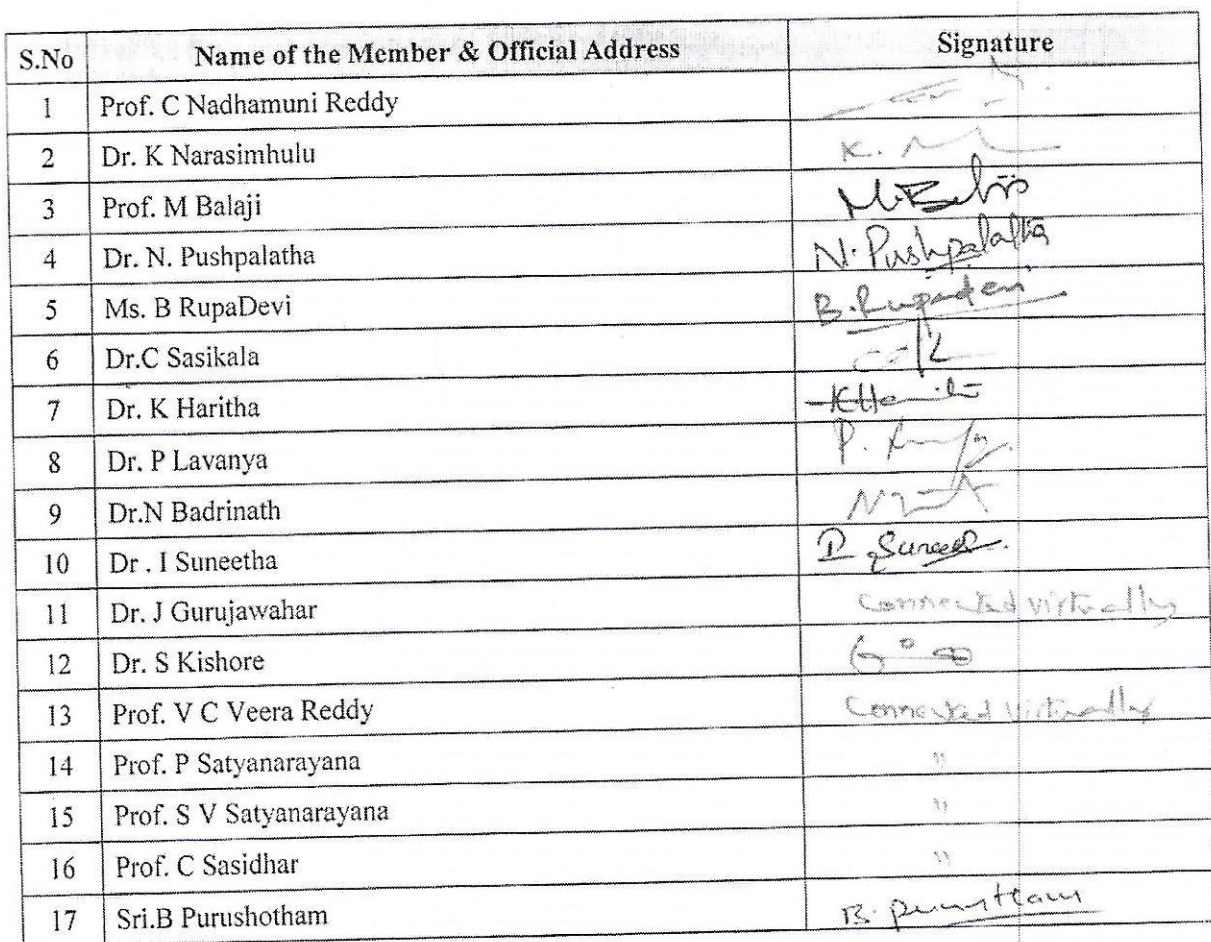 S.No Name of the Member & Official Address Signature
1 Prof. C Nadhamuni Reddy
2 Dr. K Narasimhulu K.
3 Prof. M Balaji M. Balaji
4 Dr. N. Pushpalatha N. Pushpalatha
5 Ms. B RupaDevi B. Rupadevi
6 Dr.C Sasikala
7 Dr. K Haritha K Haritha
8 Dr. P Lavanya P.
9 Dr.N Badrinath
10 Dr . I Suneetha I. Suneetha
11 Dr. J Gurujawahar Connected virtually
12 Dr. S Kishore
13 Prof. V C Veera Reddy Connected virtually
14 Prof. P Satyanarayana "
15 Prof. S V Satyanarayana "
16 Prof. C Sasidhar "
17 Sri.B Purushotham B. Purushotham